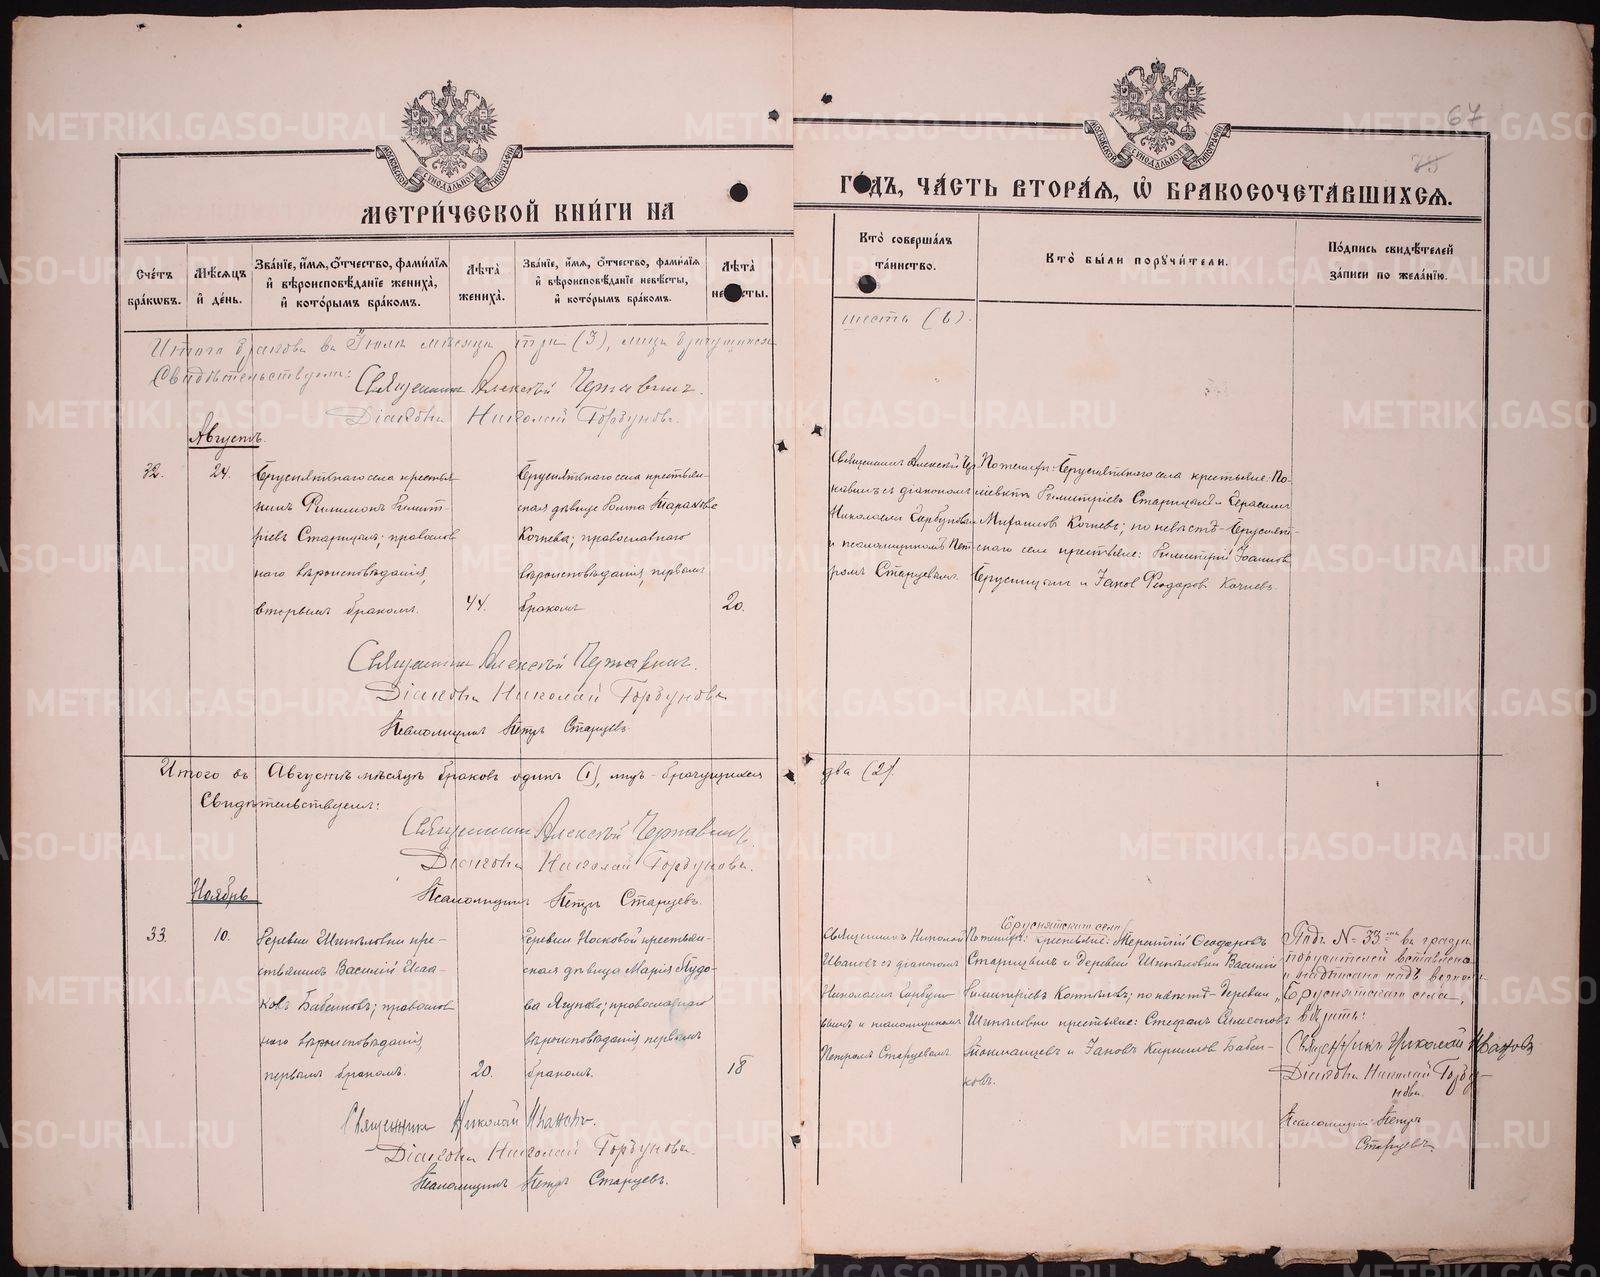 67
75
МЕТРИ́ЧЕСКОЙ КНИ́ГИ НА
ГОДЪ, ЧА́СТЬ ВТОРА́Я, Ѡ БРАКОСОЧЕТА́ВШИХСЯ.
Сче́тъ бра́кѡвъ.
Мѣ́сяцъ и́ де́нь.
Зва́нїе, и́мя, ѻ́тчество, фами́лїя и́ вѣроисповѣ́данїе жениха̀, и́ кото́рымъ бра́комъ.
Лѣ́та жениха̀.
Зва́нїе, и́мя, ѻ́тчество, фами́лїя и́ вѣроисповѣ́данїе невѣ́сты, и́ кото́рымъ бра́комъ.
Лѣ́та невѣ́сты.
Кто̀ соверша́лъ та́инство.
Кто̀ бы́ли порꙋчи́тели.
По́дпись свидѣ́телей за́писи по жела́нїю.
Итого браковъ въ Іюлѣ мѣсяцѣ три (3), лицъ брачущихся
шесть (6).
Свидѣтельствуемъ:
Священникъ Алексѣй Чернавинъ.
Діаконъ Николай Горбуновъ.
Августъ.
32.
24.
села крестья-
нинъ Филимонъ Димит-
ріевъ Старицынъ; православ-
наго вѣроисповѣданія,
вторымъ бракомъ.
44.
села крестьян-
ская дѣвица
Кочнева; православнаго
вѣроисповѣданія, первымъ
бракомъ
20.
Священникъ Алексѣй Чер-
навинъ съ діакономъ
Николаемъ Горбуновымъ
и псаломщикомъ Пет-
ромъ Старцевымъ.
По женихѣ: села крестьяне:
Димитріевъ Старицынъ и Герасимъ
Михаиловъ Кочневъ; по невѣстѣ
скаго села крестьяне: Димитрій Іоанновъ
и Іаковъ Ѳеодоровъ Кочневъ.
Священникъ Алексѣй Чернавинъ.
Діаконъ Николай Горбуновъ
Псаломщикъ Петръ Старцевъ.
Итого въ Августѣ мѣсяцѣ браковъ одинъ (1), лицъ - брачущихся
два (2).
Свидѣтельствуемъ:
Священникъ Алексѣй Чернавинъ.
Діаконъ Николай Горбуновъ.
Псаломщикъ Петръ Старцевъ.
Ноябрь
33.
10.
Деревни Шипиловки кре-
стьянинъ Василій Исаа-
ковъ Бабинковъ; православ-
наго вѣроисповѣданія,
первымъ бракомъ.
20.
Деревни Носковой крестьян-
ская дѣвица Марія
православнаго
вѣроисповѣданія, первымъ
бракомъ.
18
Священникъ Николай
Ивановъ съ діакономъ
Николаемъ Горбуно-
вымъ и псаломщикомъ
Петромъ Старцевымъ
Бруснятскаго села
По женихѣ: крестьяне: Терентій Ѳеодоровъ
Старицынъ и деревни Шипиловки Василій
Димитріевъ по невѣстѣ - деревни
Шипиловки крестьяне: Стефанъ Симеоновъ
и Іаковъ Кирилловъ Бабин-
ковъ.
Подъ № 33 въ графѣ
поручителей вставлено
и надписано надъ верхомъ
„Бруснятскаго села",
вѣрить:
Священникъ Николай Ивановъ
Діаконъ Николай Горбу-
новъ.
Псаломщикъ Петръ
Старцевъ.
Священникъ Николай Ивановъ.
Діаконъ Николай Горбуновъ.
Псаломщикъ Петръ Старцевъ.
METRIKI.GASO-URAL.RU